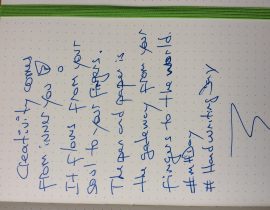 Creativity comes
from inner you
It flows from your
soul to your fingers.
The pen and paper is
the gateway from your
fingers to the world.
#Handwriting Day